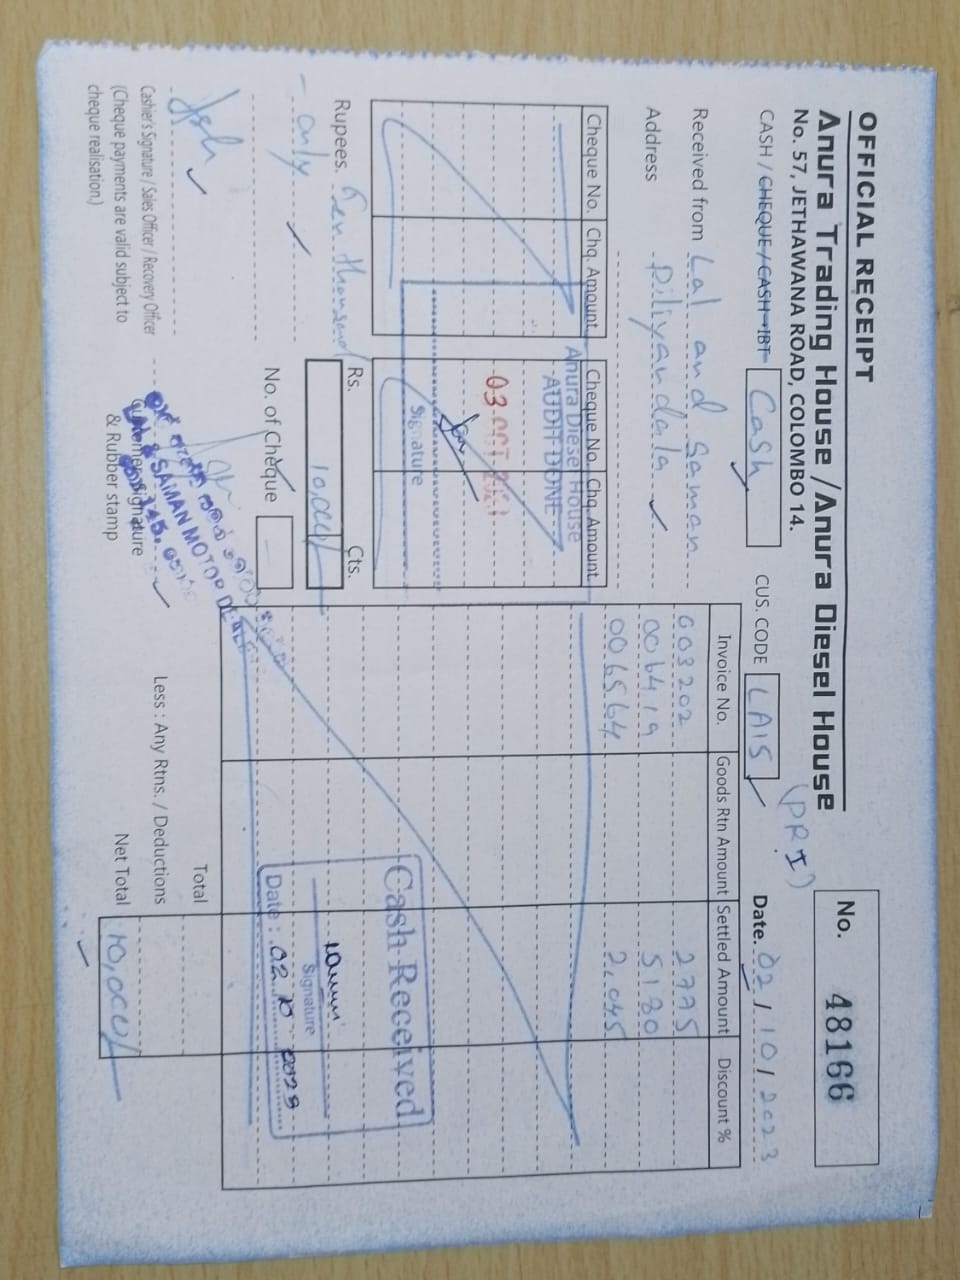 OFFICIAL RECEIPT
Anura Trading House / Anura Diesel House
No. 57, JETHAWANA ROAD, COLOMBO 14.
(PRI)
No. 48166
CASH / CHEQUE / CASH-IBT Cash
CUS. CODE LA15
Date. 02 / 10 / 2023
Received from Lal and Saman
Address Piliyandala
Cheque No. Chq. Amount Cheque No. Chq. Amount
Anura Diesel House
AUDIT DONE
03 OCT
Signature
Invoice No. Goods Rtn Amount Settled Amount Discount %
003202 2775
006419 5180
006564 2,045
Rupees. Ten thousand
only
Rs. Cts.
10,000/
No. of Cheque -
Cash Received
Signature
Date : 02 10 2023
Total
Less : Any Rtns. / Deductions
Net Total 10,000/
Cashier's Signature / Sales Officer / Recovery Officer
(Cheque payments are valid subject to
cheque realisation.)
Customer Signature
& Rubber stamp
& SAMAN MOTOR